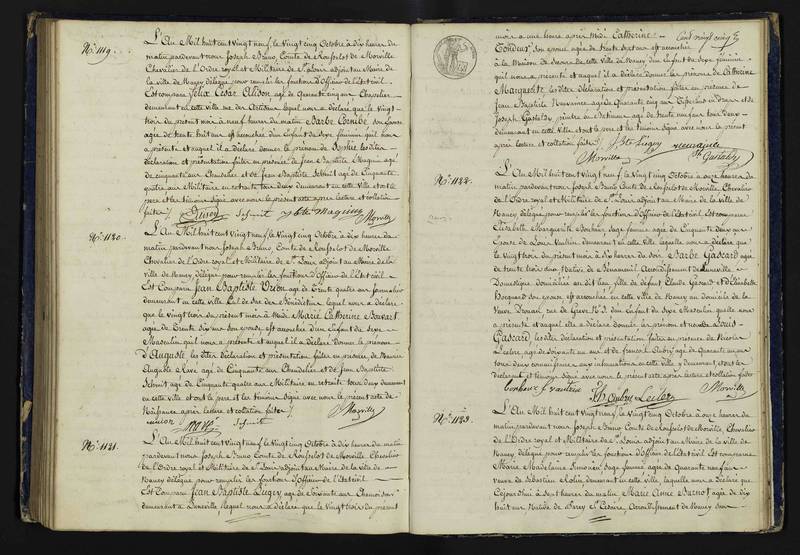 N.° 1119.
L'An Mil huit cent Vingt neuf, le Vingt cinq Octobre à dix heures du
matin, pardevant nous Joseph Bruno, Comte de Rousselot de Morville
Chevalier de l'Ordre royal et Militaire de S.t Louis, adjoint au Maire de
la ville de Nancy, délégué pour remplir les fonctions d'Officier de l'Etat civil
Est comparu Félix César Alison, âgé de quarante cinq ans, Chapelier
demeurant en cette ville lequel nous a déclaré que le Vingt
trois du présent mois à neuf heures du matin Barbe
âgée de trente huit ans est accouchée d'un Enfant du Sexe féminin qu'il nous
a présenté et auquel il a déclaré donner le prénom de Sophie les dites
déclaration et présentation faites en présence de Jean Baptiste Magin, âgé
de cinquante ans Chandelier et de Jean Baptiste Schmit âgé de Cinquante
quatre ans Militaire en retraite tous deux demeurant en cette ville et ont le
père et les témoins Signé avec nous le présent acte après lecture et collation
faites.
Alison Schmit Bte Magin Morville
N.° 1120.
L'An Mil huit cent Vingt neuf, le Vingt cinq Octobre à dix heures du
matin, pardevant nous Joseph Bruno, Comte de Rousselot de Morville
Chevalier de l'Ordre royal et Militaire de S.t Louis, adjoint au Maire de la
ville de Nancy, délégué pour remplir les fonctions d'Officier de l'Etat civil
Est Comparu Jean Baptiste âgé de Trente quatre ans Journalier
demeurant en cette ville lequel nous a déclaré
que le Vingt trois du présent mois à Midi Marie Catherine
âgée de Trente Six ans son épouse, est accouchée d'un Enfant du Sexe
Masculin qu'il nous a présenté et auquel il a déclaré donner le prénom
d'Auguste, les dites déclaration et présentation faites en présence de Maurice
Auguste âgé de Cinquante ans Chandelier et de Jean Baptiste
Schmit âgé de Cinquante quatre ans Militaire en retraite tous deux demeurant
en cette ville et ont le père et les témoins Signé avec nous le présent acte de
Naissance après lecture et collation faites.
Schmit Morville
N.° 1121.
L'An Mil huit cent Vingt neuf, le Vingt cinq Octobre à dix heures du matin
pardevant nous Joseph Bruno Comte de Rousselot de Morville, Chevalier
de l'Ordre royal et Militaire de S.t Louis adjoint au Maire de la ville de
Nancy délégué pour remplir les fonctions d'Officier de l'Etat civil
Est Comparu Jean Baptiste Lugey, âgé de Soixante ans
demeurant à Lunéville lequel nous a déclaré que le Vingt trois du présent
Cent vingt cinq
mois à une heure après midi Catherine
Tondeur, son épouse, âgée de trente sept ans est accouchée
à la Maison de de cette Ville de Nancy d'un Enfant du Sexe féminin
qu'il nous a présenté et auquel il a déclaré donner les prénoms de Catherine
Marguerite, les dites déclaration et présentation faites en présence de
Jean Baptiste âgé de Quarante cinq ans et de
Joseph Gastaldy, peintre en Bâtimens âgé de trente neuf ans tous deux
demeurant en cette Ville et ont le père et les témoins Signé avec nous le présent
après lecture et collation faites. J. Bte Lugey
Morville Jh Gastaldy
N.° 1122.
L'An Mil huit cent Vingt neuf, le Vingt cinq Octobre à onze heures du
matin, pardevant nous Joseph Bruno Comte de Rousselot de Morville, Chevalier
de l'Ordre royal et Militaire de S.t Louis adjoint au Maire de la Ville de
Nancy délégué pour remplir les fonctions d'Officier de l'Etat civil. Est comparue
Elisabeth Marguerite Bonheur, Sage femme âgée de Cinquante deux ans
Epouse de Louis Vautrin, demeurant en cette ville laquelle nous a déclaré que
le Vingt trois du présent mois à dix heures du Soir Barbe Gascard âgée
de trente trois ans Native de Bénaménil Arrondissement de Lunéville
Domestique domiciliée au dit lieu, fille de défunt Claude Gascard et d'Elisabeth
Bocquard son épouse, est accouchée en cette ville de Nancy au domicile de la
Veuve rue de Grève N.° 3 d'un Enfant du Sexe Masculin qu'elle nous
a présenté et auquel elle a déclaré donner les prénom et nom de Louis
Gascard, les dites déclaration et présentation faites en présence de Nicolas
Leclerc, âgé de Soixante un ans et de François Aubry âgé de Quarante un ans
tous deux commissionnaires en cette ville y demeurant, et ont la
déclarante et témoins Signé avec nous le présent acte après lecture et collation faites
bonheur f vautrin Fs Aubry Leclerc Morville
N.° 1123.
L'An Mil huit cent Vingt neuf, le Vingt cinq Octobre à onze heures du
matin, pardevant nous Joseph Bruno Comte de Rousselot de Morville, Chevalier
de l'Ordre royal et Militaire de S.t Louis adjoint au Maire de la Ville de
Nancy délégué pour remplir les fonctions d'Officier de l'Etat civil. Est comparue
Marie Madelaine Simonin Sage femme âgée de Quarante neuf ans
veuve de Sébastien Rolin, demeurant en cette ville, laquelle nous a déclaré que
Cejourd'hui à Sept heures du matin Marie Anne Barnot âgée de dix
huit ans Native de Barisey Arrondissement de Nancy